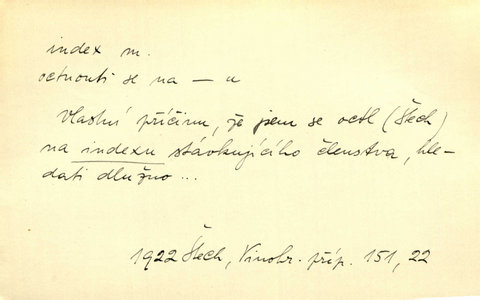 index m.
octnouti se na – u
Vlastní příčinu, že jsem se octl (Štech)
na indexu stávkujícího členstva, hle-
dati dlužno ...
1922 Štech, Vinohr. příp. 151, 22